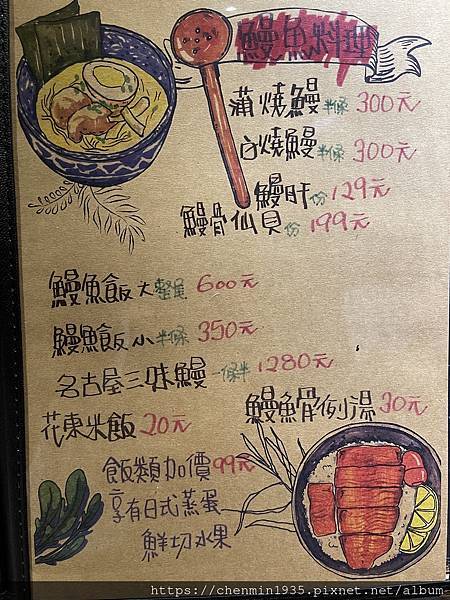 鰻魚料理
蒲燒鰻 半條 300元
白燒鰻 半條 300元
鰻肝 份 129元
鰻骨仙貝 份 199元
鰻魚飯 大 整尾 600元
鰻魚飯 小 半條 350元
名古屋三味鰻 一條半 1280元
鰻魚骨例湯 30元
花東米飯 20元
飯類加價99元
享有日式蒸蛋
鮮切水果
https://chenmin1935.pixnet.net/album